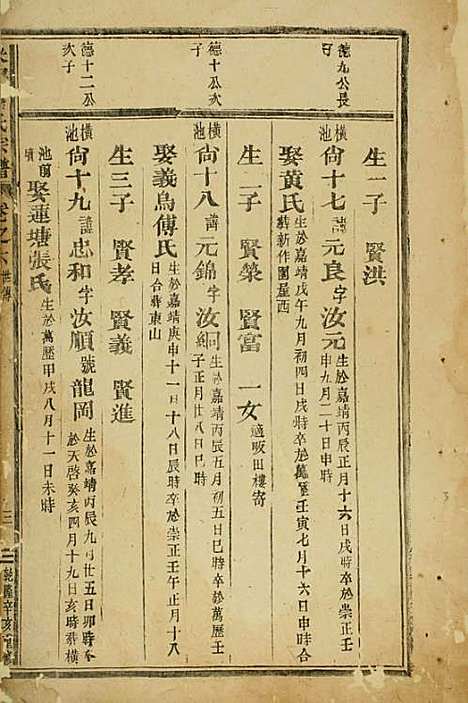 德九公長
子
德十公次
子
德十二公
次子
生一子 賢洪
橫池 尙十七 諱 元良 字 汝元 生於嘉靖丙辰正月十六日戌時卒於崇正壬
申九月二十日申時
娶黃氏 生於嘉靖戊午九月初四日戌時卒於萬歷壬寅七月十六日申時合
葬新作園屋西
生二子 賢榮 賢富 一女 適坂田樓寄
橫池 尙十八 諱 元錦 字 汝 生於嘉靖丙辰五月初五日巳時卒於萬歷壬
子正月廿八日巳時
娶義烏傅氏 生於嘉靖庚申十一月十八日辰時卒於崇正壬午正月十八
日合葬東山
生三子 賢孝 賢義 賢進
橫池 尙十九 諱 忠和 字 汝順 號 龍岡 生於嘉靖丙辰九月廿五日卯時卒
於天啓癸亥四月十九日亥時葬橫
池前 娶蓮塘張氏 生於萬歷甲戌八月十一日未時
氏宗譜 卷之六 世傳
乾隆辛亥